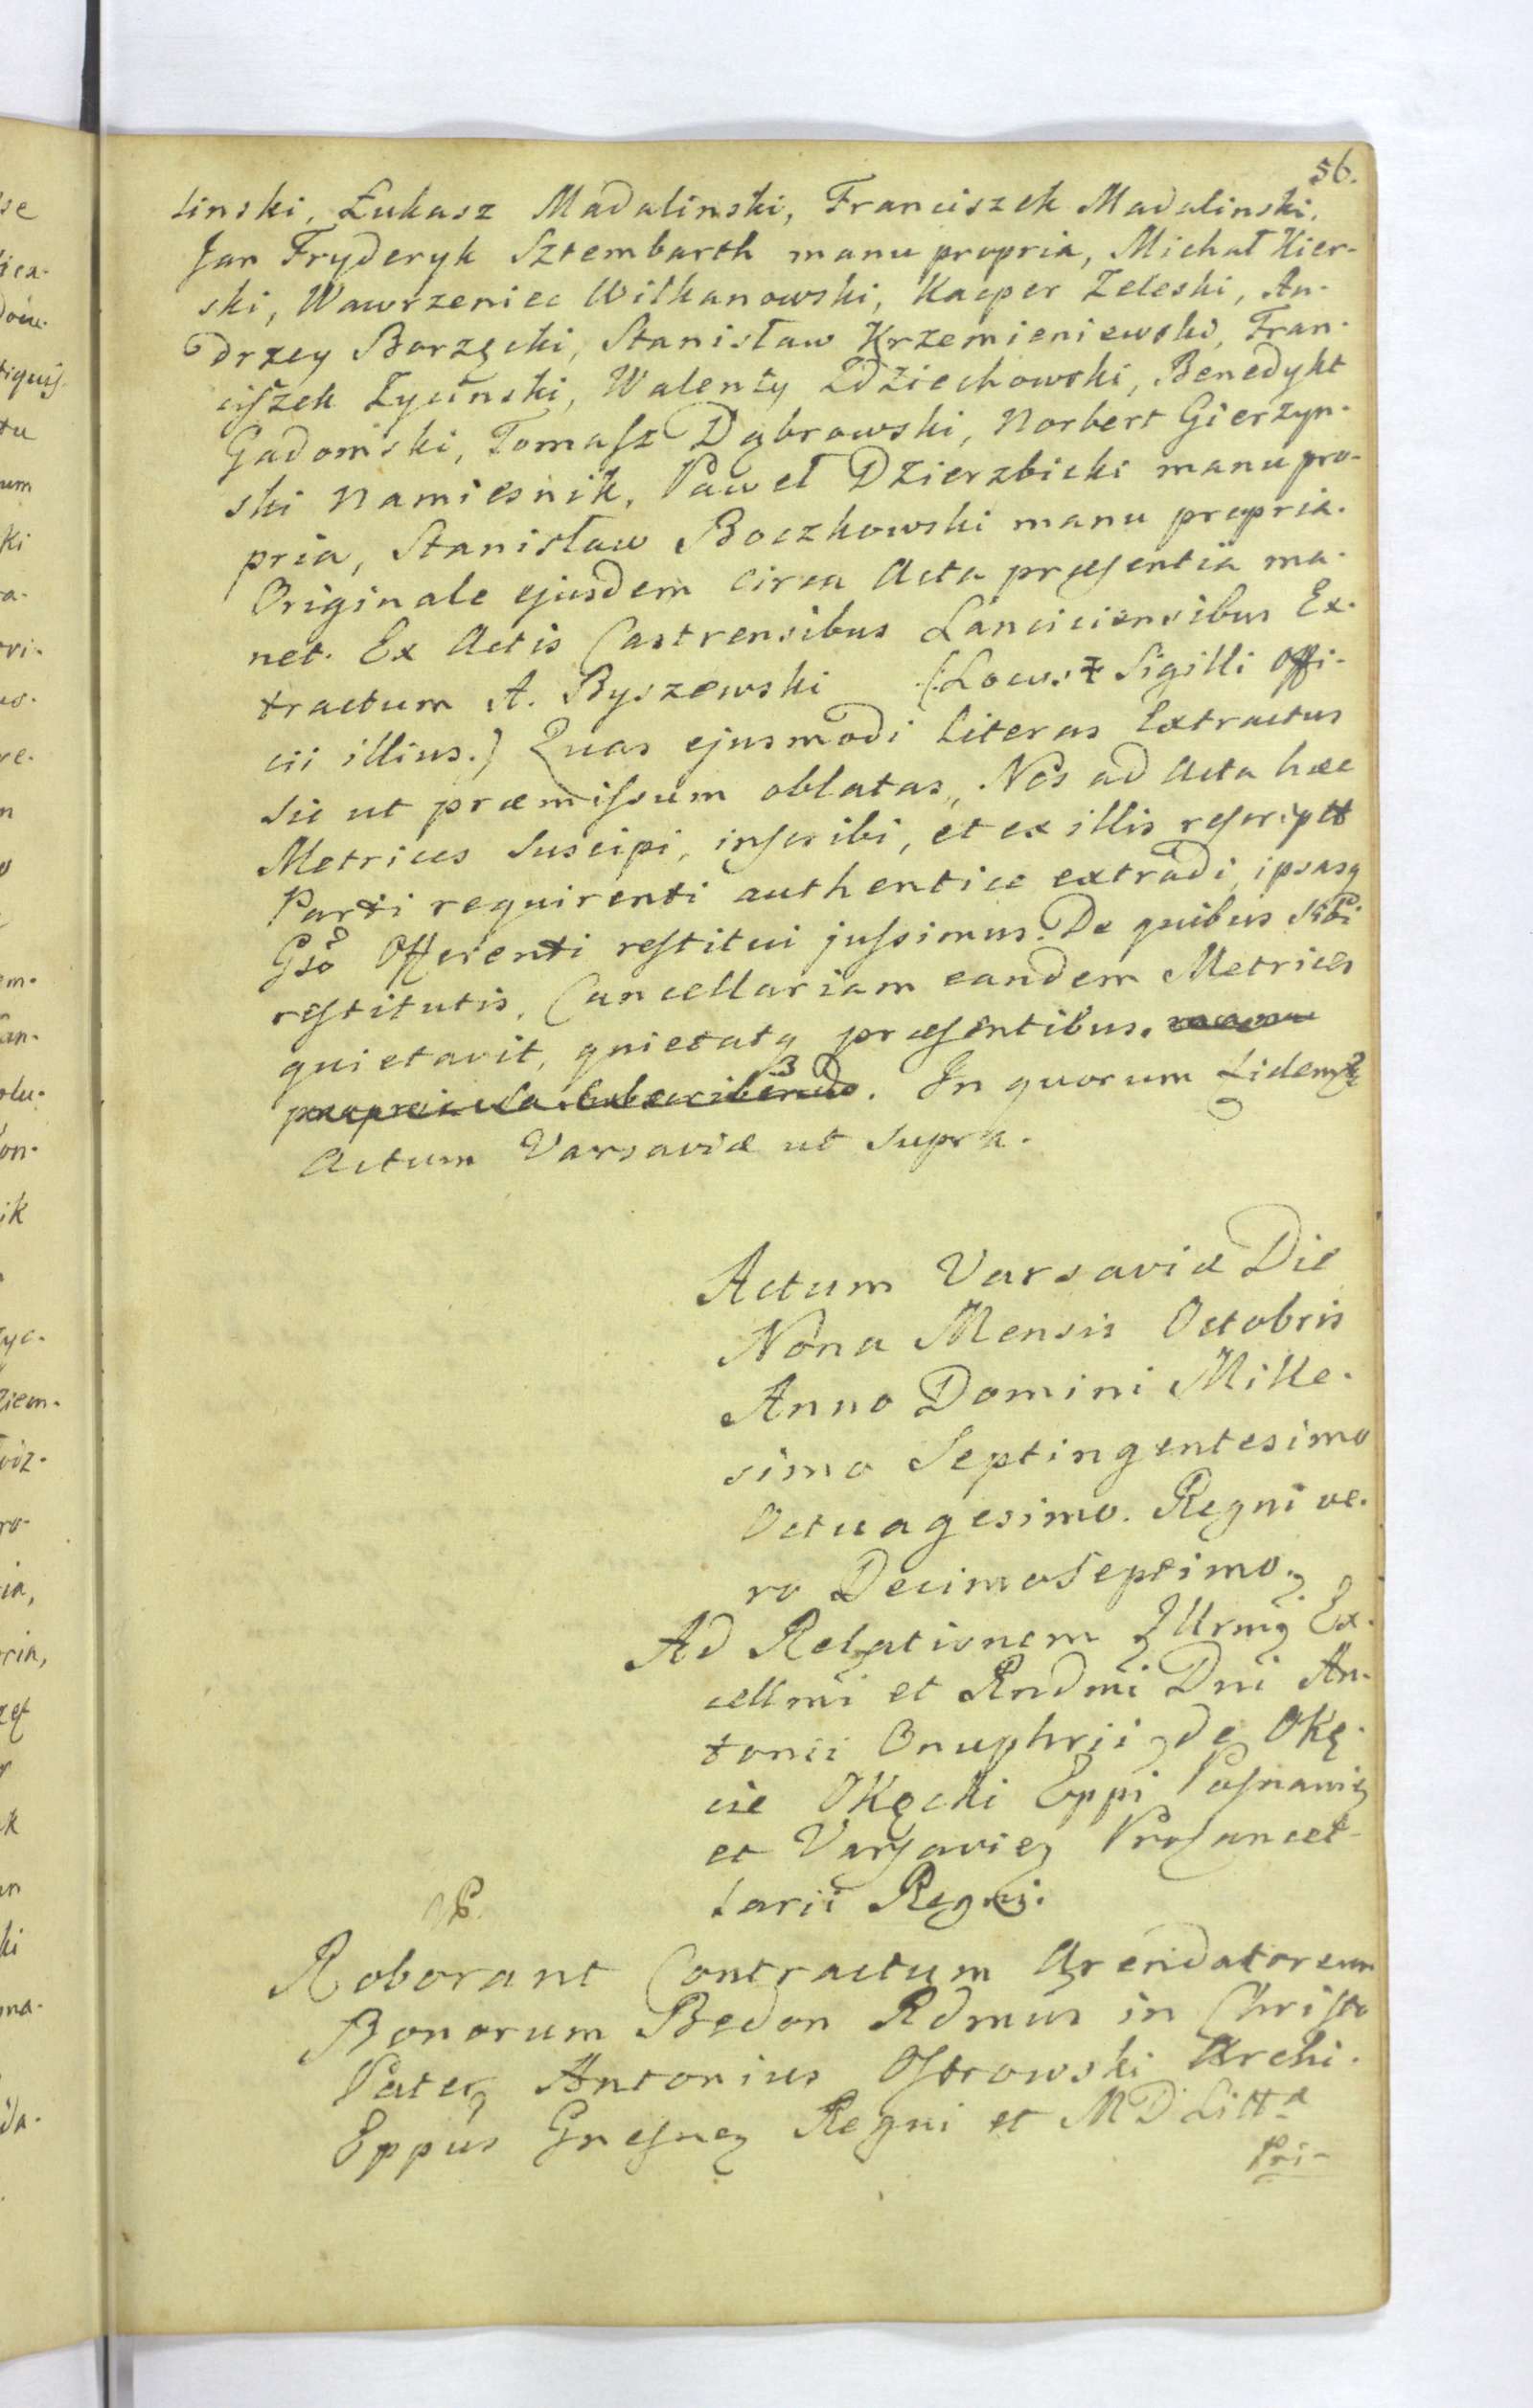 56.
linski, Łukasz Madalinski, Franciszek Madalinski,
Jan Fryderyk Sztembarth manu propria, Michał Kier-
ski, Wawrzeniec Wilkanowski, Kacper Zeleski, An-
drzey Borzęcki, Stanisław Krzemieniewski, Fran-
ciſzek Łyczński, Walenty Zdziechowski, Benedykt
Gadomski, Tomaſz Dąbrowski, Norbert Gierzyn-
ski Namiesnik, Paweł Dzierzbicki manu pro-
pria, Stanisław Boczkowski manu propria.
Originale ejusdem circa Acta præſentia ma-
net. Ex Actis Castrensibus Lanciciensibus Ex-
tractum A. Byszewski (: Locus ‡ Sigilli Offi-
cii illius.) Quas ejusmodi Literas Extractus
sic ut præmiſsum oblatas, Nos ad Acta hæc
Metrices suscipi, inſcribi, et ex illis reſcriptt
Parti requirenti authentice extradi, ipsasq
Gső Offerenti reſtitui juſsimus. De quibus sibi
reſtitutis, Cancellariam eandem Metrices
quietavit, quietatq præſentibus. manu
propria subscribendo. In quorum fidem
Actum Varsaviæ ut supra.
Actum Varsaviæ Die
Nona Mensis Octobris
Anno Domini Mille-
simo Septingentesimo
Octuagesimo. Regni ve-
ro Decimoseptimo.
Ad Relationem Illrmi Ex-
cellmi et Rndmi Dni An-
tonii Onuphrii de Okę-
cie Okęcki Eppi Poſnanię
et Varſavieꝫ Procancel-
larii Regni.
Roborant Contractum Arendatoreum
Bonorum Bedon Rdmus in Chriſto
Pater Antonius Oſtrowski Archi-
Eppus Gneſneꝫ Regni et M D Littæ
Pri-